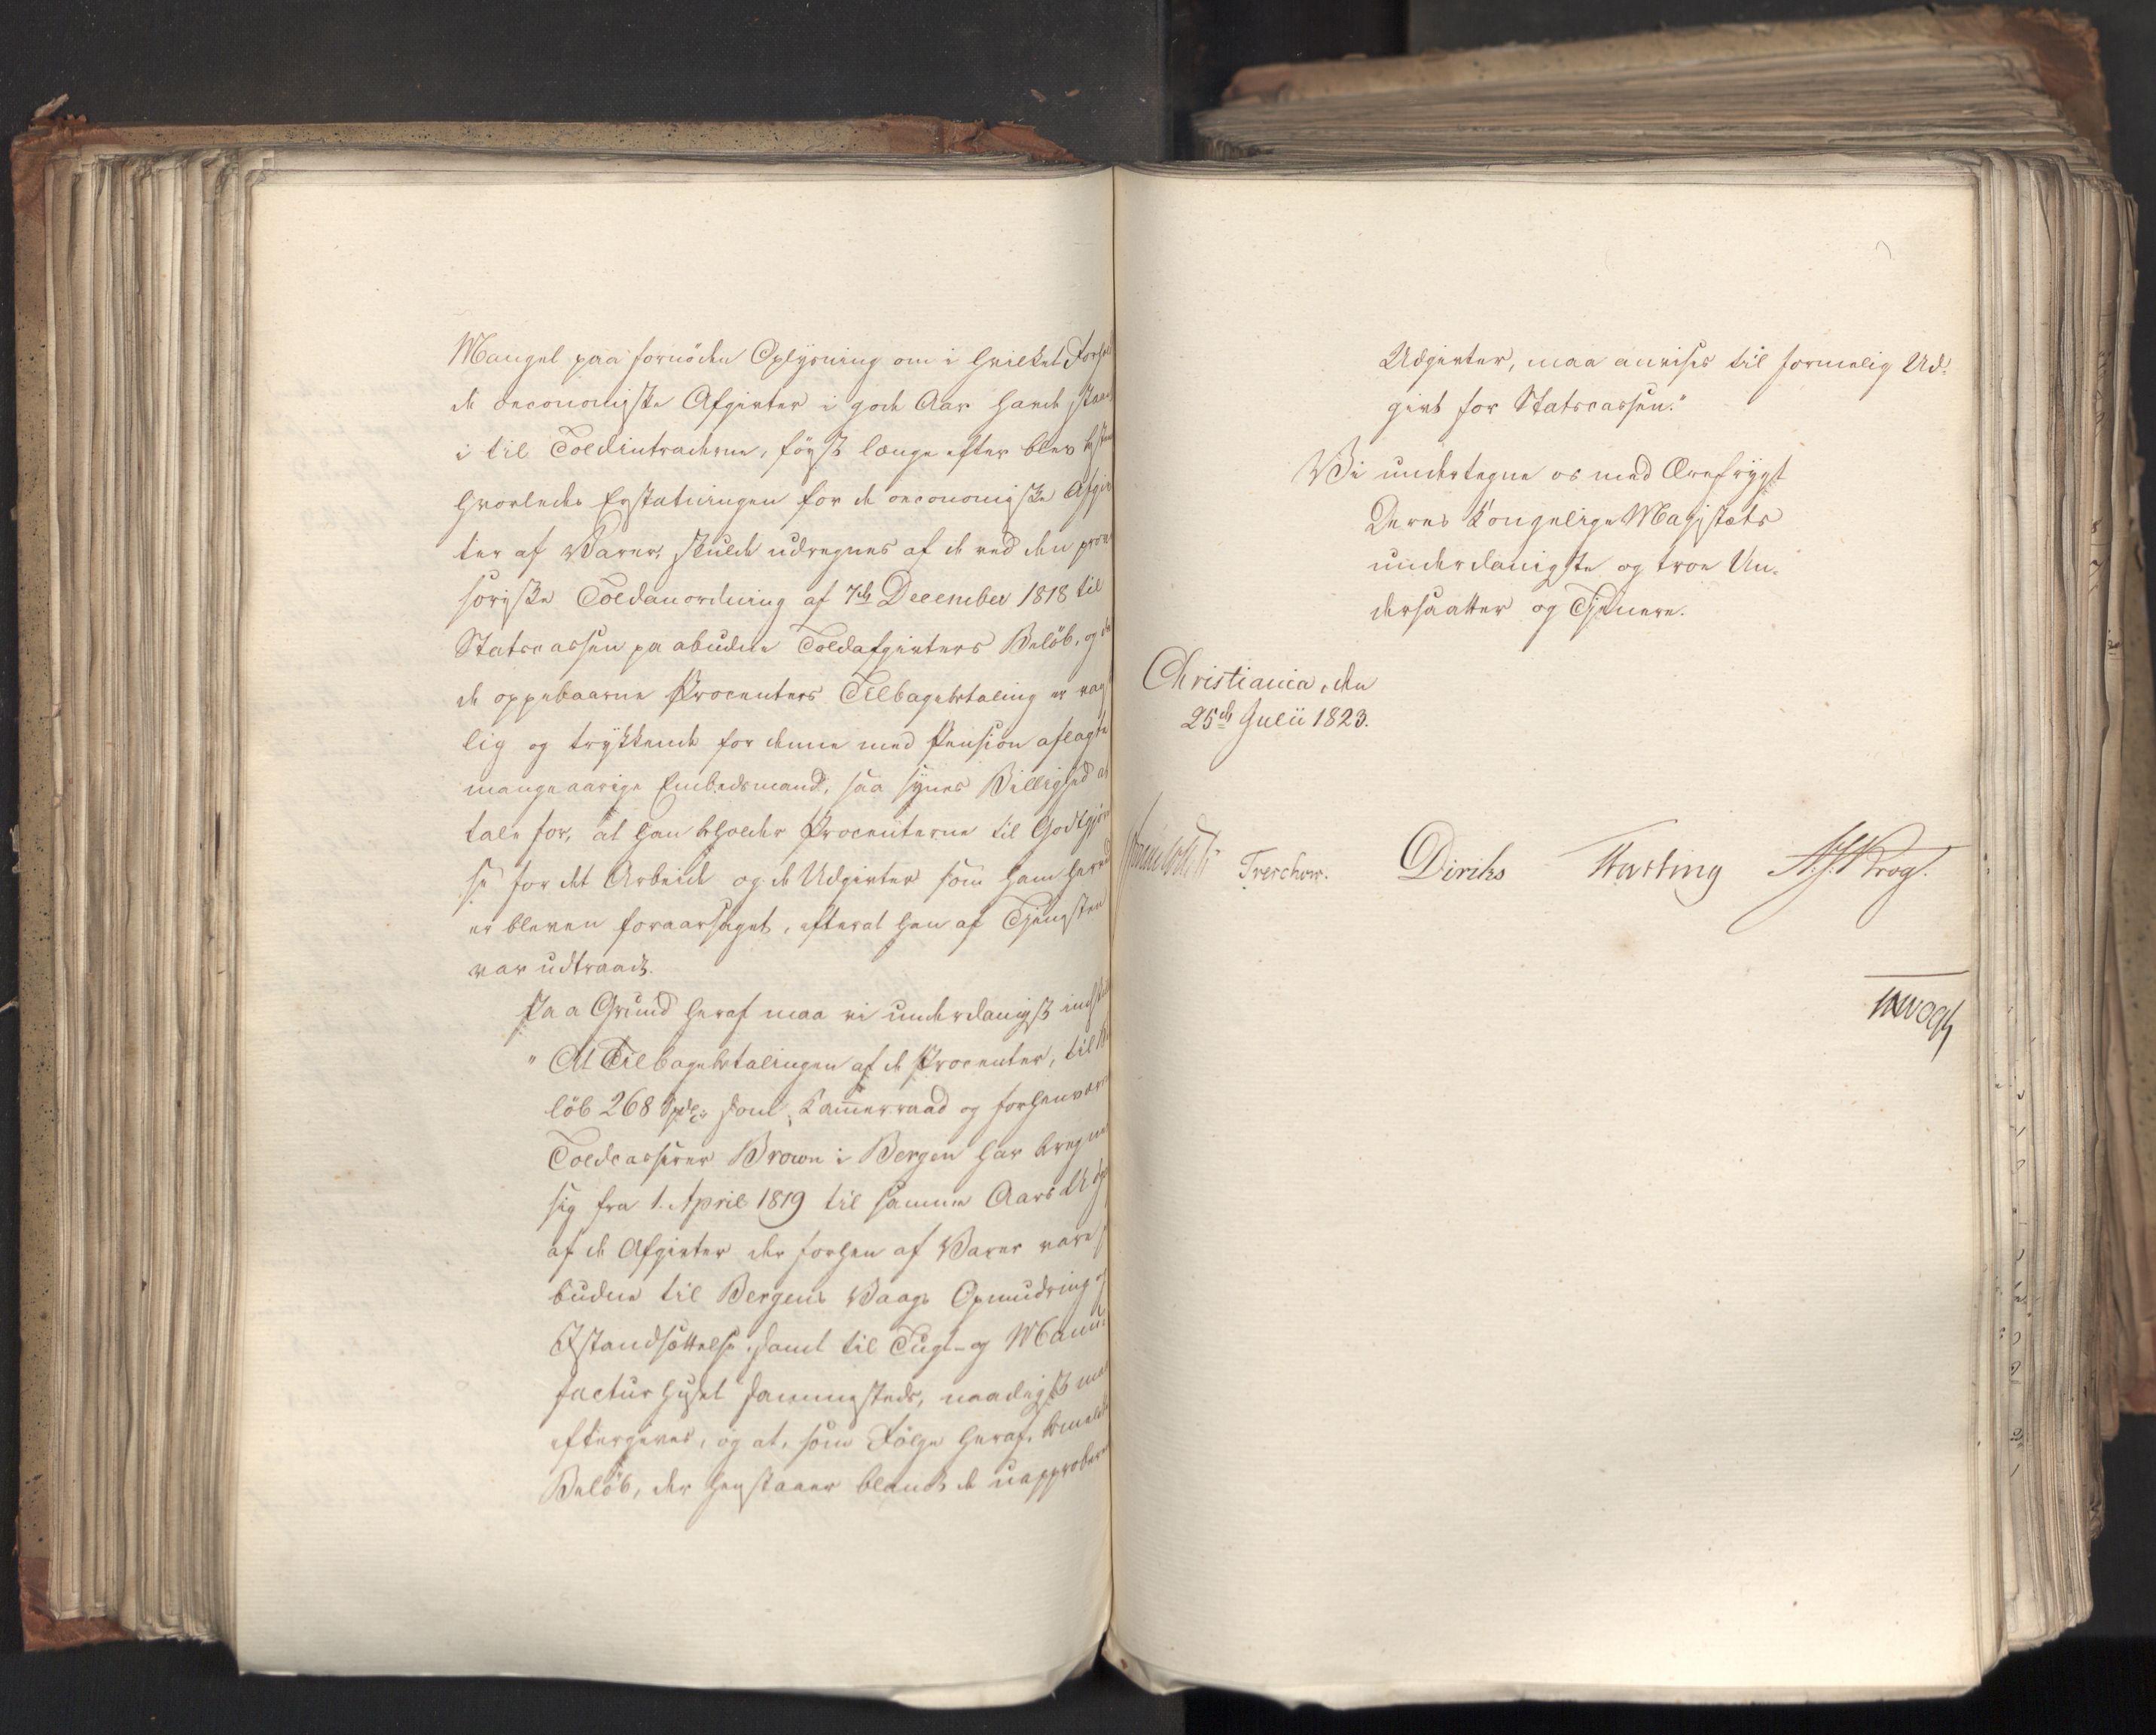 Mangel paa fornöden Oplysning om i hvilket Forhol
de oeconomiske Afgivter i gode Aar havde staae
i til Toldintraderne, først længe efter blev bestem
hvorledes Erstatningen for de oeconomiske Afgiv
ter af Varer, skulde udregnes af de ved den provi
soriske Toldanordning af 7de December 1818 til
Statscassen paabudne Toldafgivters Belöb, og da
de oppebaarne Procenters Tilbagebetaling er
lig og trykkende for denne med Pension aflagte
mangeaarige Embedsmand, saa synes Billighed at
tale for, at han beholder Procenterne til Godtgjörel
se for det Arbeide og de Udgivter som ham herved
er bleven foraarsaget, efterat han af Tjenesten
var udtraadt.
Paa Grund heraf maa vi underdanigst indstille
" At Tilbagebetalingen af de Procenter, til Be
löb 268 Spd. som Kammerraad og forhenværen
Toldcasserer Brown i Bergen har beregnet
sig fra 1. April 1819 til samme Aars Udg
af de Afgivter der forhen af Varer vare
budne til Bergens Vaags Opmudring og
Istandsættelse, samt til Tugt- og Manu-
facturhuset sammesteds, naadigst maa
eftergives, og at, som Følge heraf, bemeldte
Belöb, der henstaaer blandt de uapproberede
Udgivter, maa anvises til formelig Ud-
givt for Statscassen."
Vi undertegne os med Ærefrygt
Deres Kongelige Majestæts
underdanigste og troe Un-
dersaatter og Tjenere.
Christiania, den
25de Julii 1823.
Sommerhielm Treschow. Diriks Fasting A. J. Krog.
M Vogt